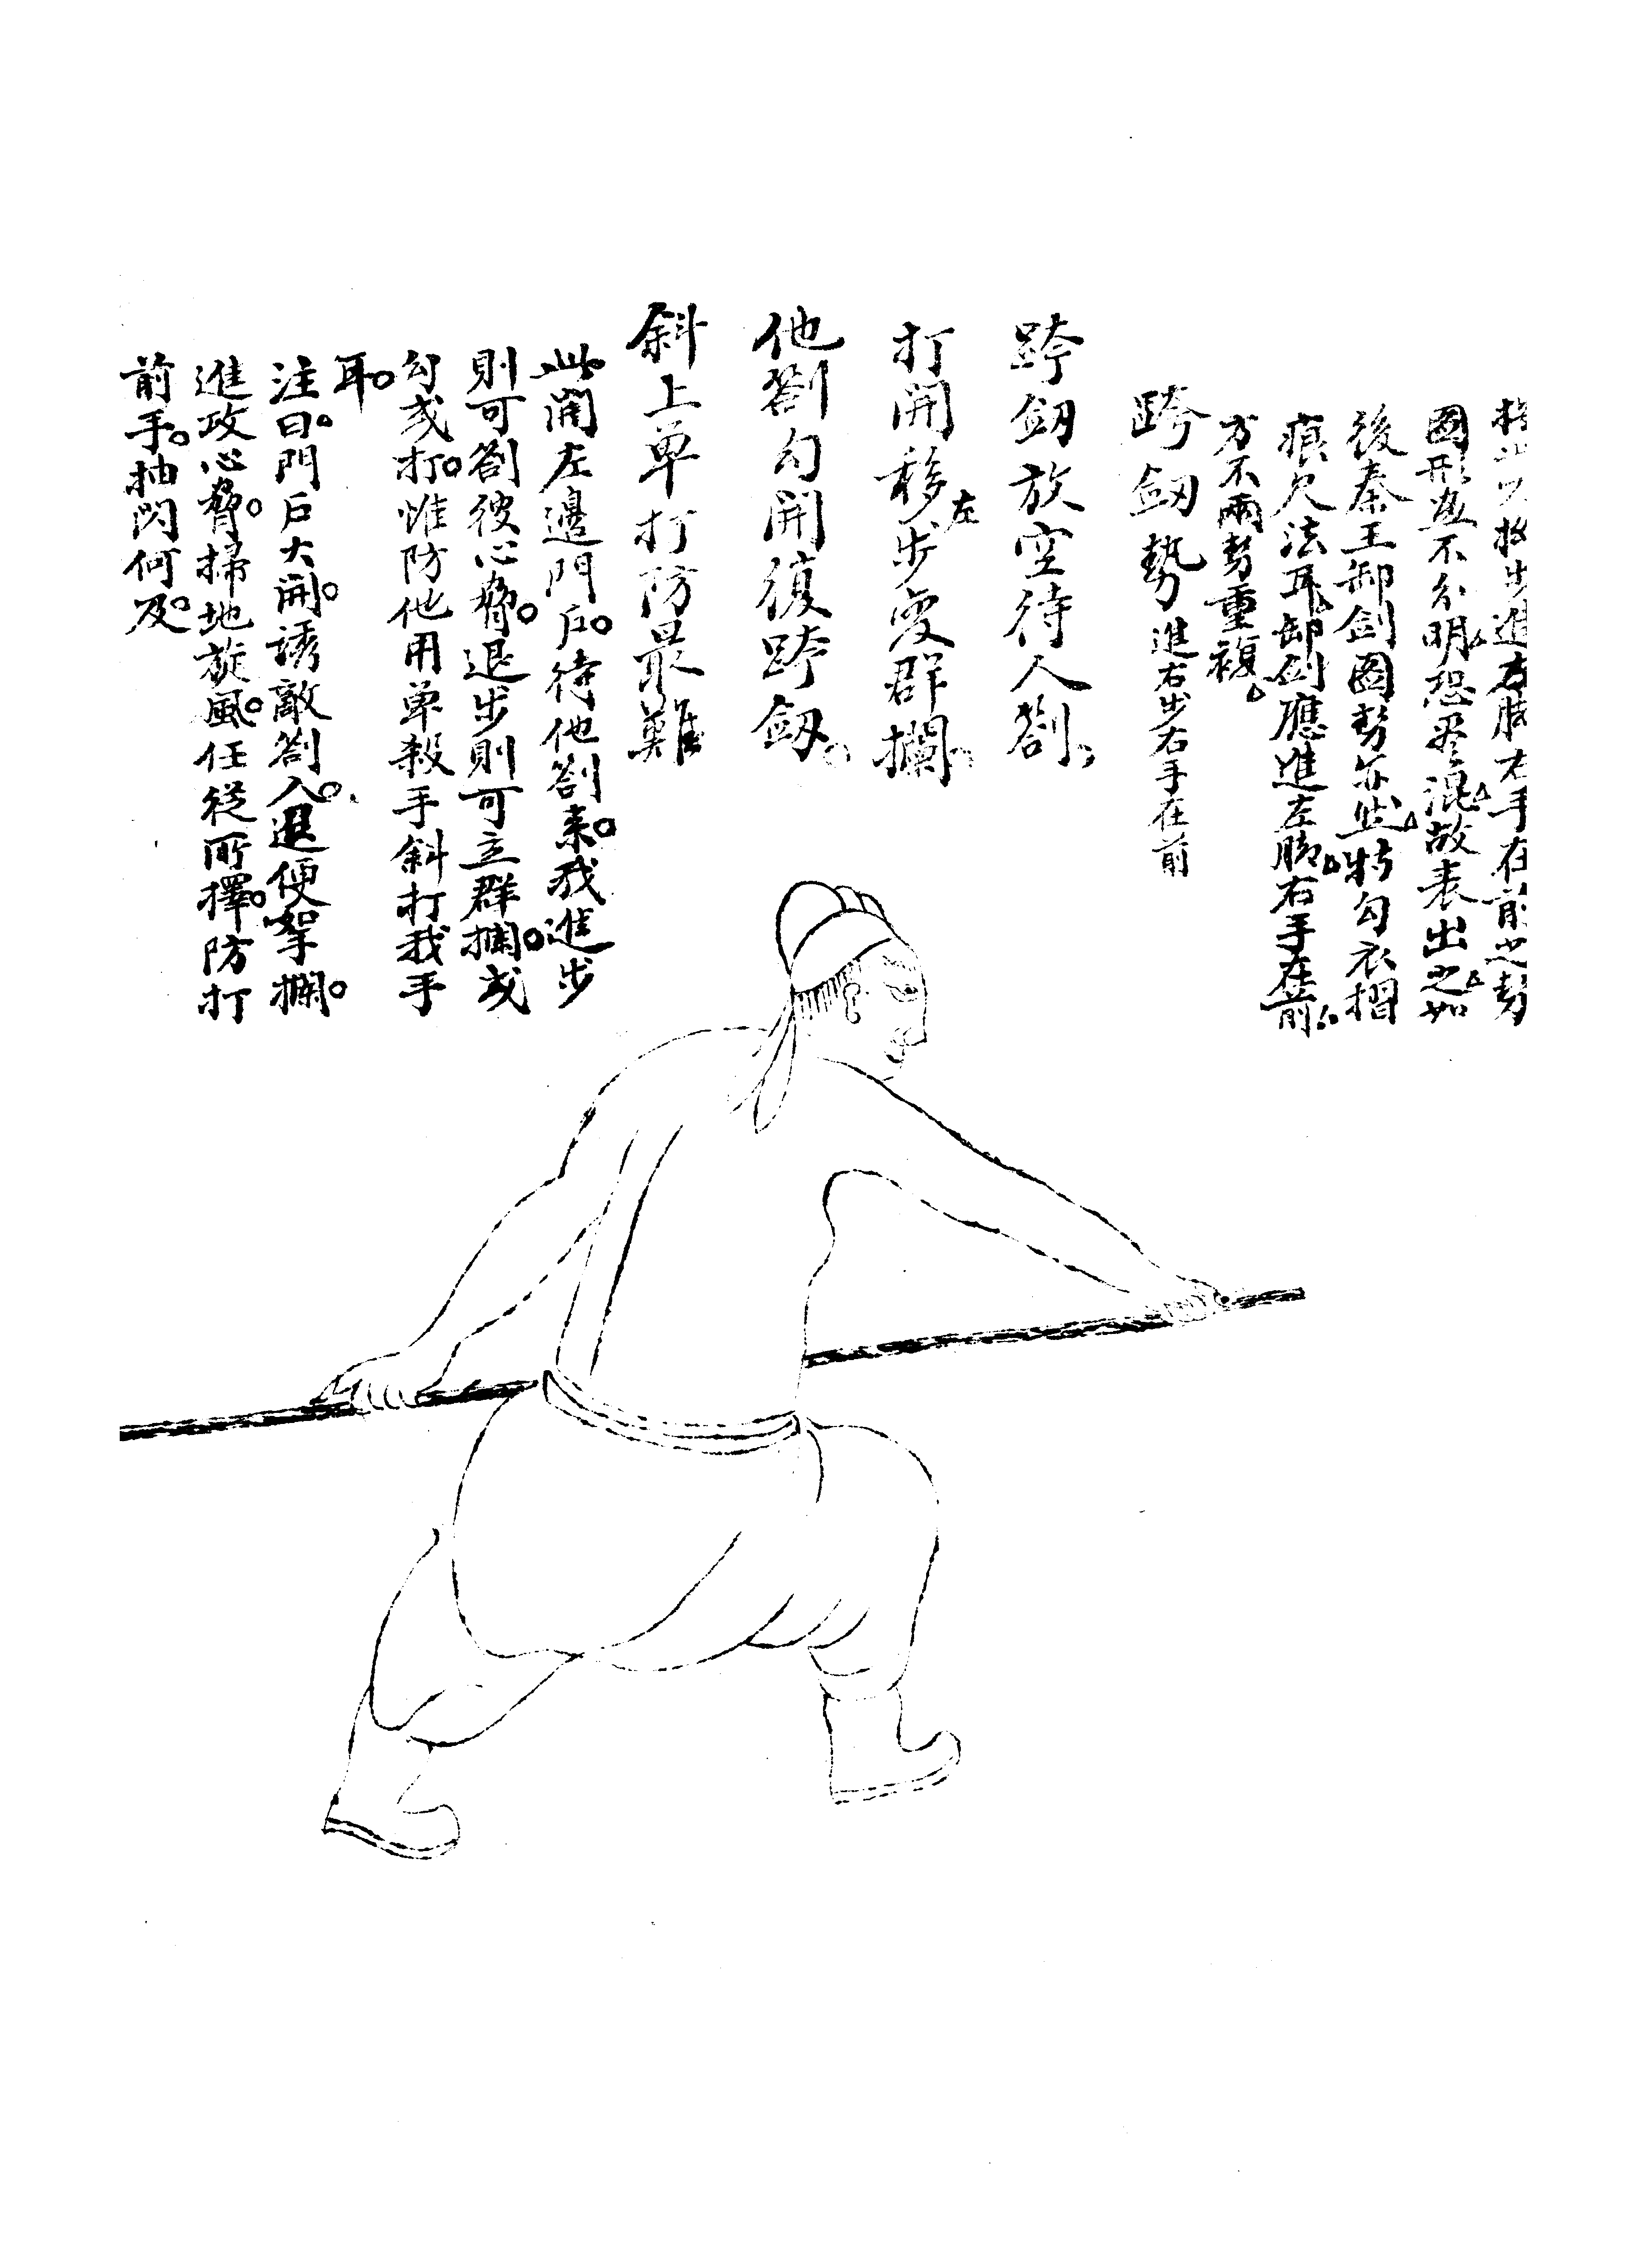 進右脚右手在前之勢
圖形並不分明恐畧混故表出之如
後秦王卸劍圖勢亦些特勾衣摺
痕欠法耳卸劍應進左脚右手在前
方不兩勢重複
跨劔勢進右步右手在前
跨劔放空待人劄
打開移左步變群攔
他劄勾開復跨劔
斜上单打防最難
此開左邊門戶待他劄来我進步
則可劄彼心脅退步則可立群攔或
勾或打惟防他用单殺手斜打我手
耳
注曰門戶大開誘敵劄入退便挐攔
進攻心脅掃地旋風任從所擇防打
前手抽閃何及